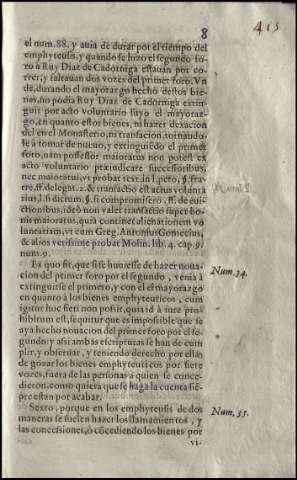 8
415
el num. 88. y auia de durar por el tiempo del
emphyteusis, y quando se hizo el segundo fo-
ro a Ruy Diaz de Cadorniga estauan por co-
rrer, y faltauan dos vozes del primer foro. Vn
de, durando el mayorazgo hecho destos bie-
nes, no podia Ruy Diaz de Cadorniga extin-
guir por acto voluntario suyo el mayoraz-
go, en quanto estos bienes, ni hazer dexacion
del en el Monasterio, ni transacion, tornando-
se à tomar de nueuo, y extinguiẽdo el primer
foro, nam possessor maioratus non potest ex
actu voluntario praeiudicare successoribus,
nec maioratui, vt probat text. in l. peto, §. fra-
tre, ff. de legat. 2. & transactio est actus volunta
rius, l. si dictum, §. si compromissero, ff. de eui-
ctionibus, ideò non valet transactio super bo-
nis maioratus, quia continet alienationem vo
luntariam, vt cum Greg. Antonius Gomecius,
& alios verissimè probat Molin. lib. 4. cap. 9.
num. 9.
Ex quo fit, que si se huuiesse de hazer noua-
cion del primer foro por el segundo, venia à
extinguirse el primero, y con el el mayorazgo
en quanto à los bienes emphyteuticos, cum
igitur hoc fieri non possit, quia id à iure pro-
hibitum est, sequitur que es impossible que se
aya hecho nouacion del primer foro por el se-
gundo: y assi ambas escripturas se han de cum
plir, y obseruar, y teniendo derecho por ellas
de gozar los bienes emphyteuticos por siete
vozes, fuera de las personas à quien se conce-
dieron, como quiera que se haga la cuenta siẽ-
pre estan por acabar.
Num. 34.
Sexto, porque en los emphyteusis de dos
maneras se suelen hazer los llamamientos, y
las concessiones, ò cõcediendo los bienes por
Num. 35.
vi-